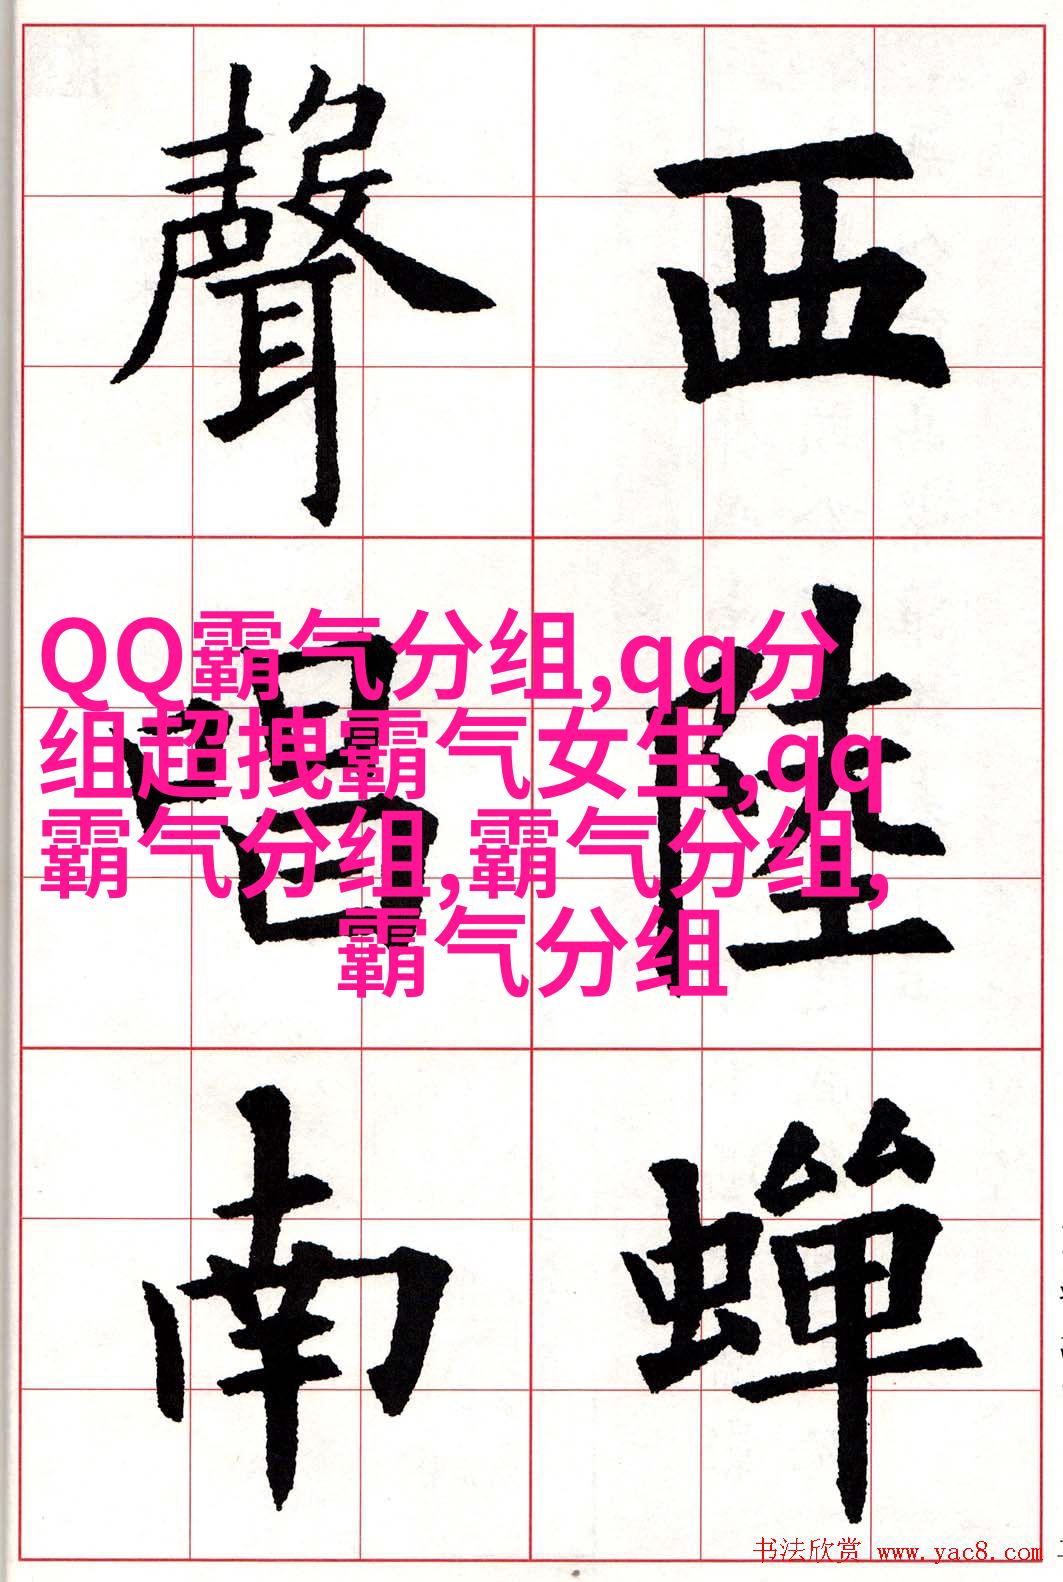 西陸蟬
聲唱南
QQ霸气分组,qq分
组超拽霸气女生,qq
霸气分组,霸气分组,
霸气分组
书法欣赏 www.yac8.com